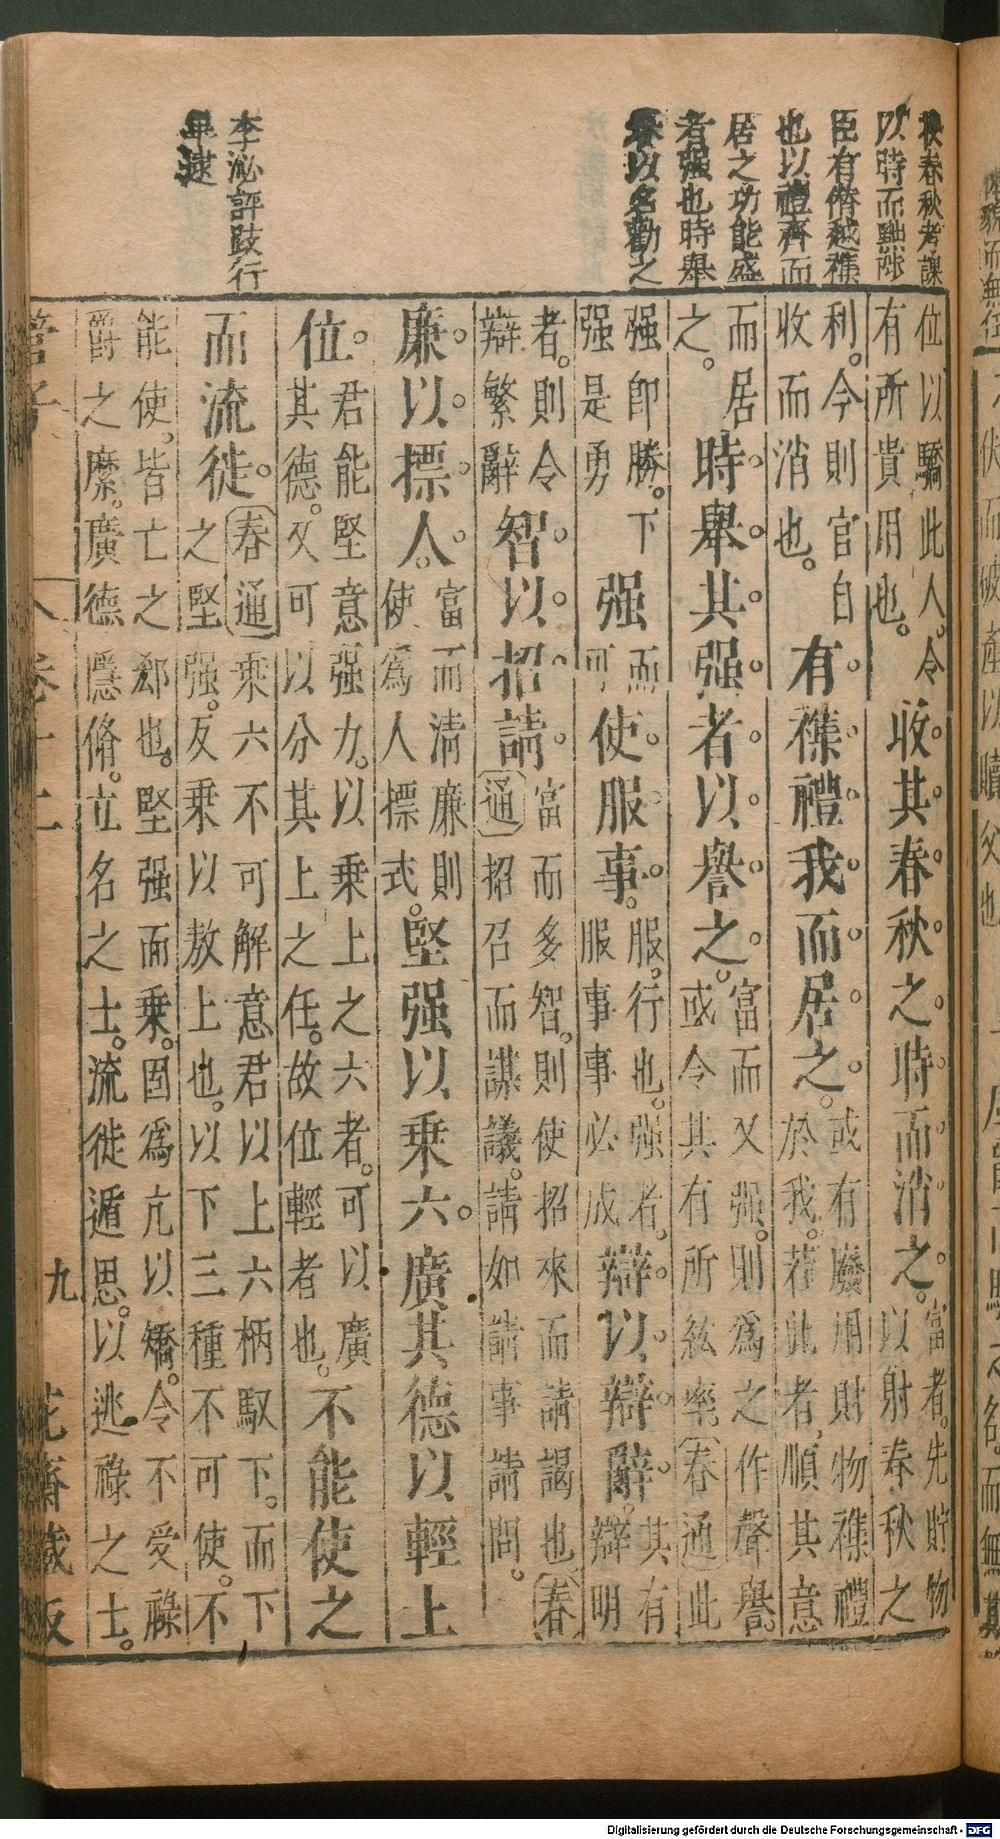 挾春秋考課
以時而黜陟
臣有脩越襍
也以禮齊而
居之功能盛
者强也時舉
春以名勸之
李泌評跂行
卑逑
位以驕此人。令
有所貴用也。
收其春秋之時而消之。
富者。先貯物
以射春秋之
利。今則官自
收而消也。
有襍禮我而居之。
或有廢用財物襍禮
於我。若此者，順其意
而居
之。
時舉其强者以譽之。
富而又强。則爲之作聲譽。
或令其有所紘率春通此
强即勝。下
强是勇
强而可使服事。
服。行也。强者。
服事事必成
辯以辯辭。
其有
辯明
者。則令
辯繁辭
智以招請。
富而多智。則使招來而請謁也春
通招召而謀議。請如請事請問。
廉以摽人。
富而清廉則
使爲人摽式。
堅强以乘六。廣其德以輕上
位。
君能堅意强力。以乘上之六者。可以廣
其德。又可以分其上之任。故位輕者也。
不能使之
而流徙。
春通乘六不可解意君以上六柄馭下。而下
之堅强。反乘以敖上也。以下三種不可使。不
能使。皆亡之鄰也。堅强而乘。因爲亢以矯。令不受祿
爵之縻。廣德隱脩。立名之士。流徙遁思。以逃祿之士。
管子
卷十二
九
花齋藏板
Digitalisierung gefördert durch die Deutsche Forschungsgemeinschaft - DFG